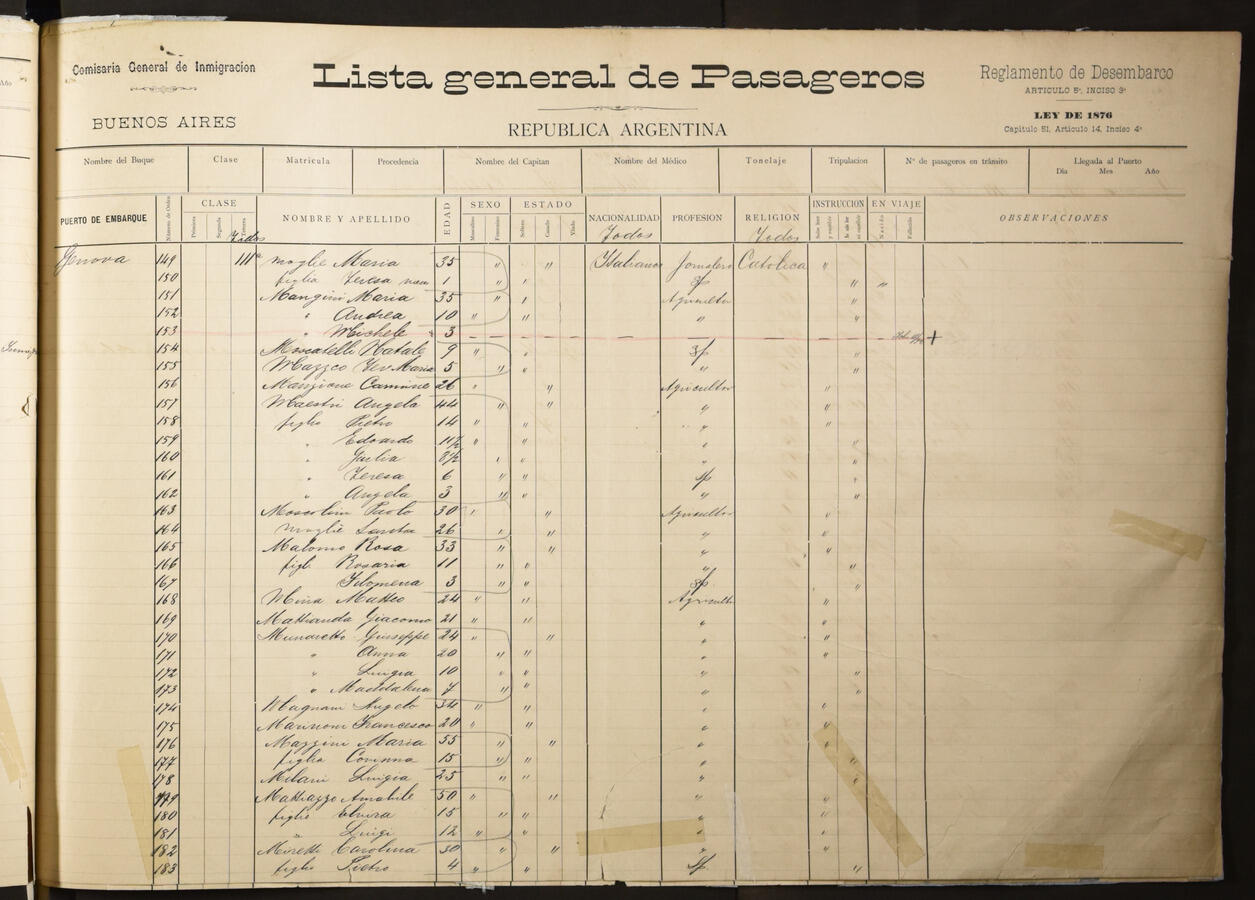 Comisaria General de Inmigracion
BUENOS AIRES
Lista general de Pasageros
REPUBLICA ARGENTINA
Reglamento de Desembarco
ARTICULO 5º, INCISO 3º
LEY DE 1876
Capitulo 51, Articulo 14, Inciso 4º
Nombre del Buque Clase Matricula Procedencia Nombre del Capitan Nombre del Médico Tonelaje Tripulacion Nº de pasageros en tránsito Llegada al Puerto
Dia Mes Año
PUERTO DE EMBARQUE Número de Orden CLASE NOMBRE Y APELLIDO EDAD SEXO ESTADO NACIONALIDAD PROFESION RELIGION INSTRUCCION EN VIAJE OBSERVACIONES
Primera Segunda Tercera Masculino Femenino Soltero Casado Viudo Nacido Fallecido
Todos Todos Todos
Genova 149 IIIª moglie Maria 35 " " Italiana Jornalero Catolica "
150 figlia Teresa 1 " " " "
151 Mangini Maria 35 " " Agricultor "
152 " Andrea 10 " " " "
153 " Michele 3 +
154 Moscatelli Natale 9 " " "
155 Maria 5 " " "
156 Mangione Carmine 26 " " Agricultor "
157 Maestri Angela 44 " " " "
158 figlio Pietro 14 " " " "
159 " Edoardo 11½ " " " "
160 " Giulia 8½ " " " "
161 " Teresa 6 " " "
162 " Angela 3 " " " "
163 Moscolini Paolo 30 " " Agricultor "
164 moglie Santa 26 " " " "
165 Malomo Rosa 33 " " " "
166 figli Rosaria 11 " " " "
167 Filomena 3 " " "
168 Matteo 24 " " Agricult "
169 Mattranda Giacomo 21 " " " "
170 Munaretto Giuseppe 24 " " " "
171 " Anna 20 " " " "
172 " Luigia 10 " " " "
173 " Maddalena 7 " " " "
174 Magnani Angelo 34 " " " "
175 Marinoni Francesco 20 " " " "
176 Mazzini Maria 55 " " " "
177 figlia Corinna 15 " " " "
178 Milani Luigia 25 " " " "
179 Mattiazzo Amabile 50 " " " "
180 figlio Elvira 15 " " " "
181 " Luigi 12 " " " "
182 Miretti Carolina 30 " " " "
183 figlio Pietro 4 " " "